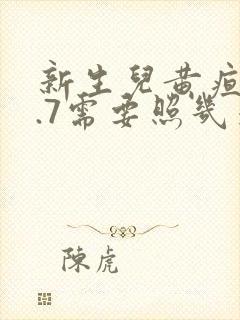 新生兒黃疸
.7需要照幾
陳虎